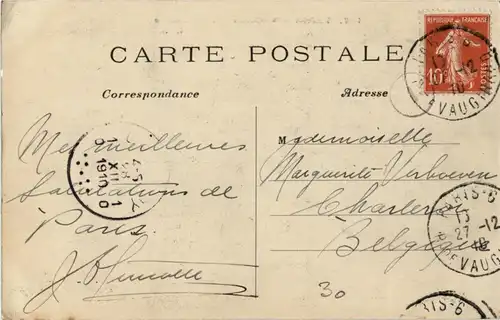 CARTE POSTALE
Correspondance
Adresse
RÉPUBLIQUE FRANÇAISE
10
POSTES
Mes meilleures
salutations de
Paris
Mademoiselle
Marguerite Verboeven
Charleroi
Belgique
30
1910
PARIS-6
27 -12
R. DE VAUGIRARD
RIS-6